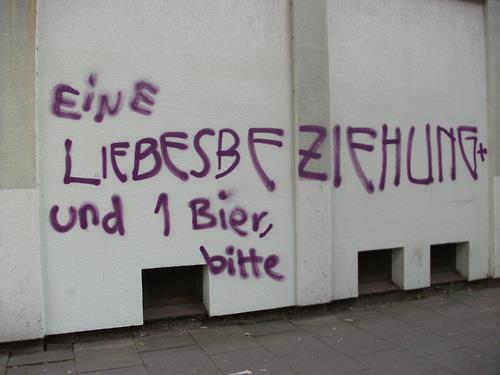 EiNE
LIEBESBEZIEHUNG+
und 1 Bier,
bitte